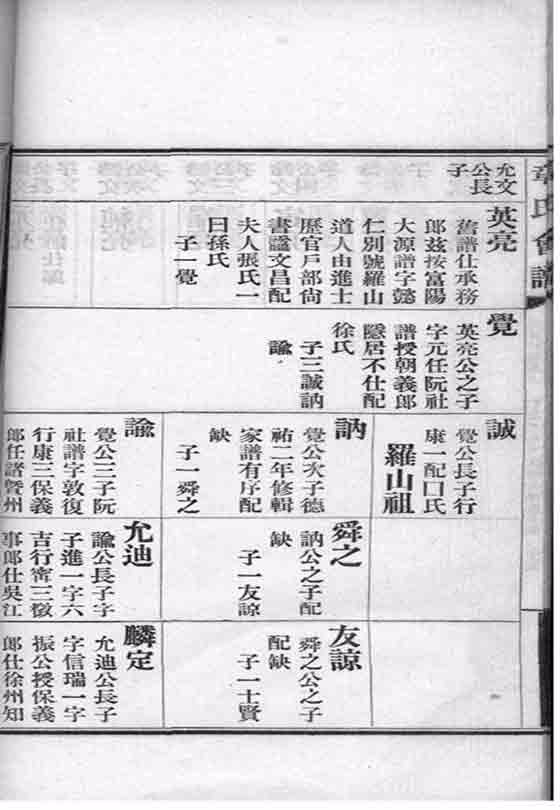 章氏會譜
允文
公長
子
英亮
舊譜仕承務
郎茲按富陽
大源譜字懿
仁別號羅山
道人由進士
歷官戶部尙
書諡文昌配
夫人張氏一
曰孫氏
子一覺
覺
英亮公之子
字元任阮社
譜授朝義郎
隱居不仕配
徐氏
子三誠訥
諭
誠
覺公長子行
康一配口氏
羅山祖
訥
覺公次子德
祐二年修輯
家譜有序配
缺
子一舜之
諭
覺公三子阮
社譜字敦復
行康三保義
郎任諸暨州
舜之
訥公之子配
缺
子一友諒
允迪
諭公長子字
子進一字六
吉行甯三徵
事郎仕吳江
友諒
舜之公之子
配缺
子一士賢
麟定
允迪公長子
字信瑞一字
振公授保義
郎仕徐州知